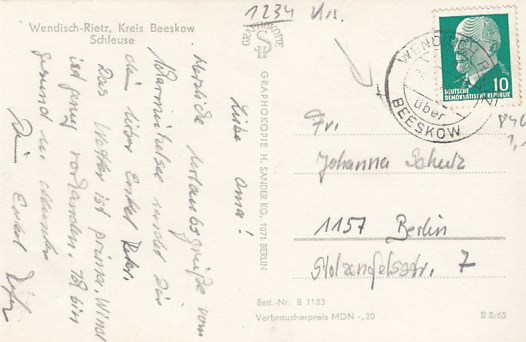 Wendisch-Rietz, Kreis Beeskow
Schleuse
1234
Liebe Oma!
Herzliche Urlaubsgrüße vom
Scharmützelsee sendet Dir
Dein lieber Enkel
Das Wetter ist prima. Wind
ist genug vorhanden. Ich bin
gesund und munter
Dein Enkel
GRAPHOKOPIE H. SANDER KG, 1071 BERLIN
DEUTSCHE
DEMOKRATISCHE REPUBLIK
10
über
BEESKOW
Fr.
Johanna Schulz
1157 Berlin
Stolzenfelsstr. 7
Best.-Nr. B 1183
Verbraucherpreis MDN -,20
B 8/65